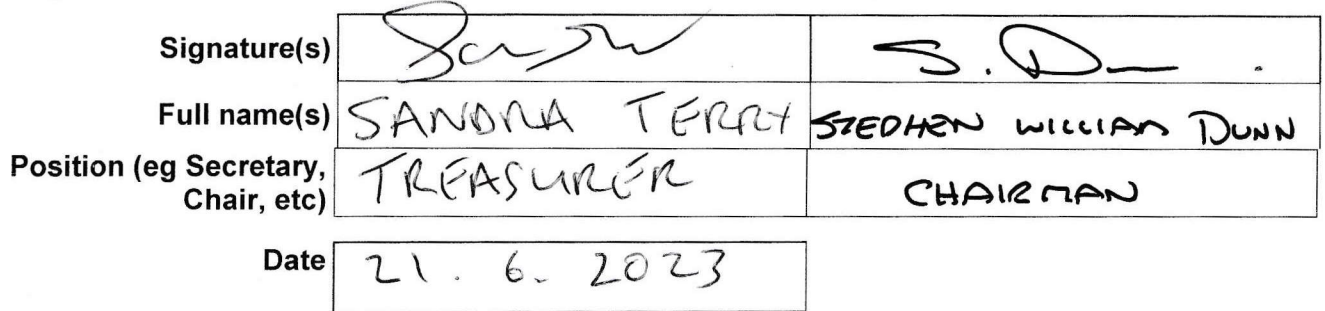 Signature(s) S. Dunn
Full name(s) SANDRA TERRY STEPHEN WILLIAM DUNN
Position (eg Secretary, Chair, etc) TREASURER CHAIRMAN
Date 21. 6. 2023